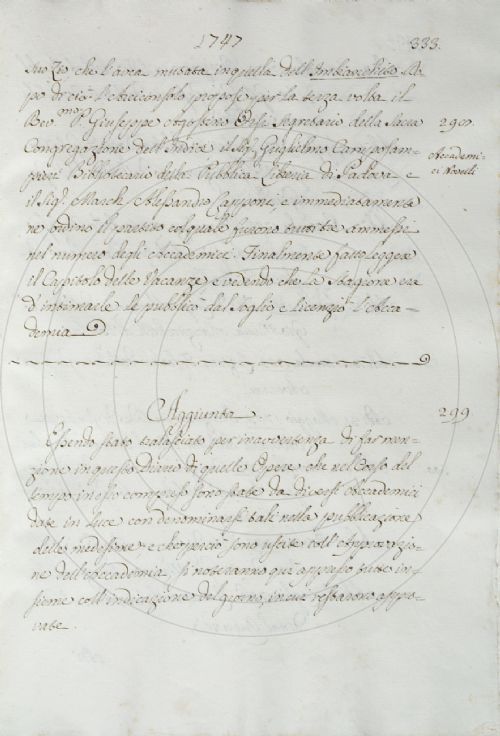 1747
333.
suo Zio che l'avea mutata in quella dell'Ambasciata. Do-
po di ciò l'Arciconsolo propose per la terza volta il
Rev.mo P. Giuseppe Agostino Orsi Segretario della Sacra
298.
Congregazione dell'Indice il Sig.r Guglielmo Camposam-
Accademi-
piero Bibliotecario della Pubblica Libreria di Padova e
ci Novelli
il Sig.r March. Alessandro Capponi, e immediatamente
ne ordinò il partito col quale furono tutti tre ammessi
nel numero degli Accademici. Finalmente fatto leggere
il Capitolo delle Vacanze e vedendo che la Stagione era
d'intimarle le pubblicò dal Soglio e licenziò l'Acca-
demia
Aggiunta
299
Essendo stato tralasciato per inavvertenza di far men-
zione in questo Diario di quelle Opere che nel Corso del
tempo in esso compreso sono state da diversi Accademici
date in Luce con denominarsi tali nella pubblicazione
delle medesime, e che perciò sono uscite coll'Approvazio-
ne dell'Accademia, si noteranno qui appresso tutte in-
sieme coll'indicazione del giorno, in cui restarono appro-
vate.